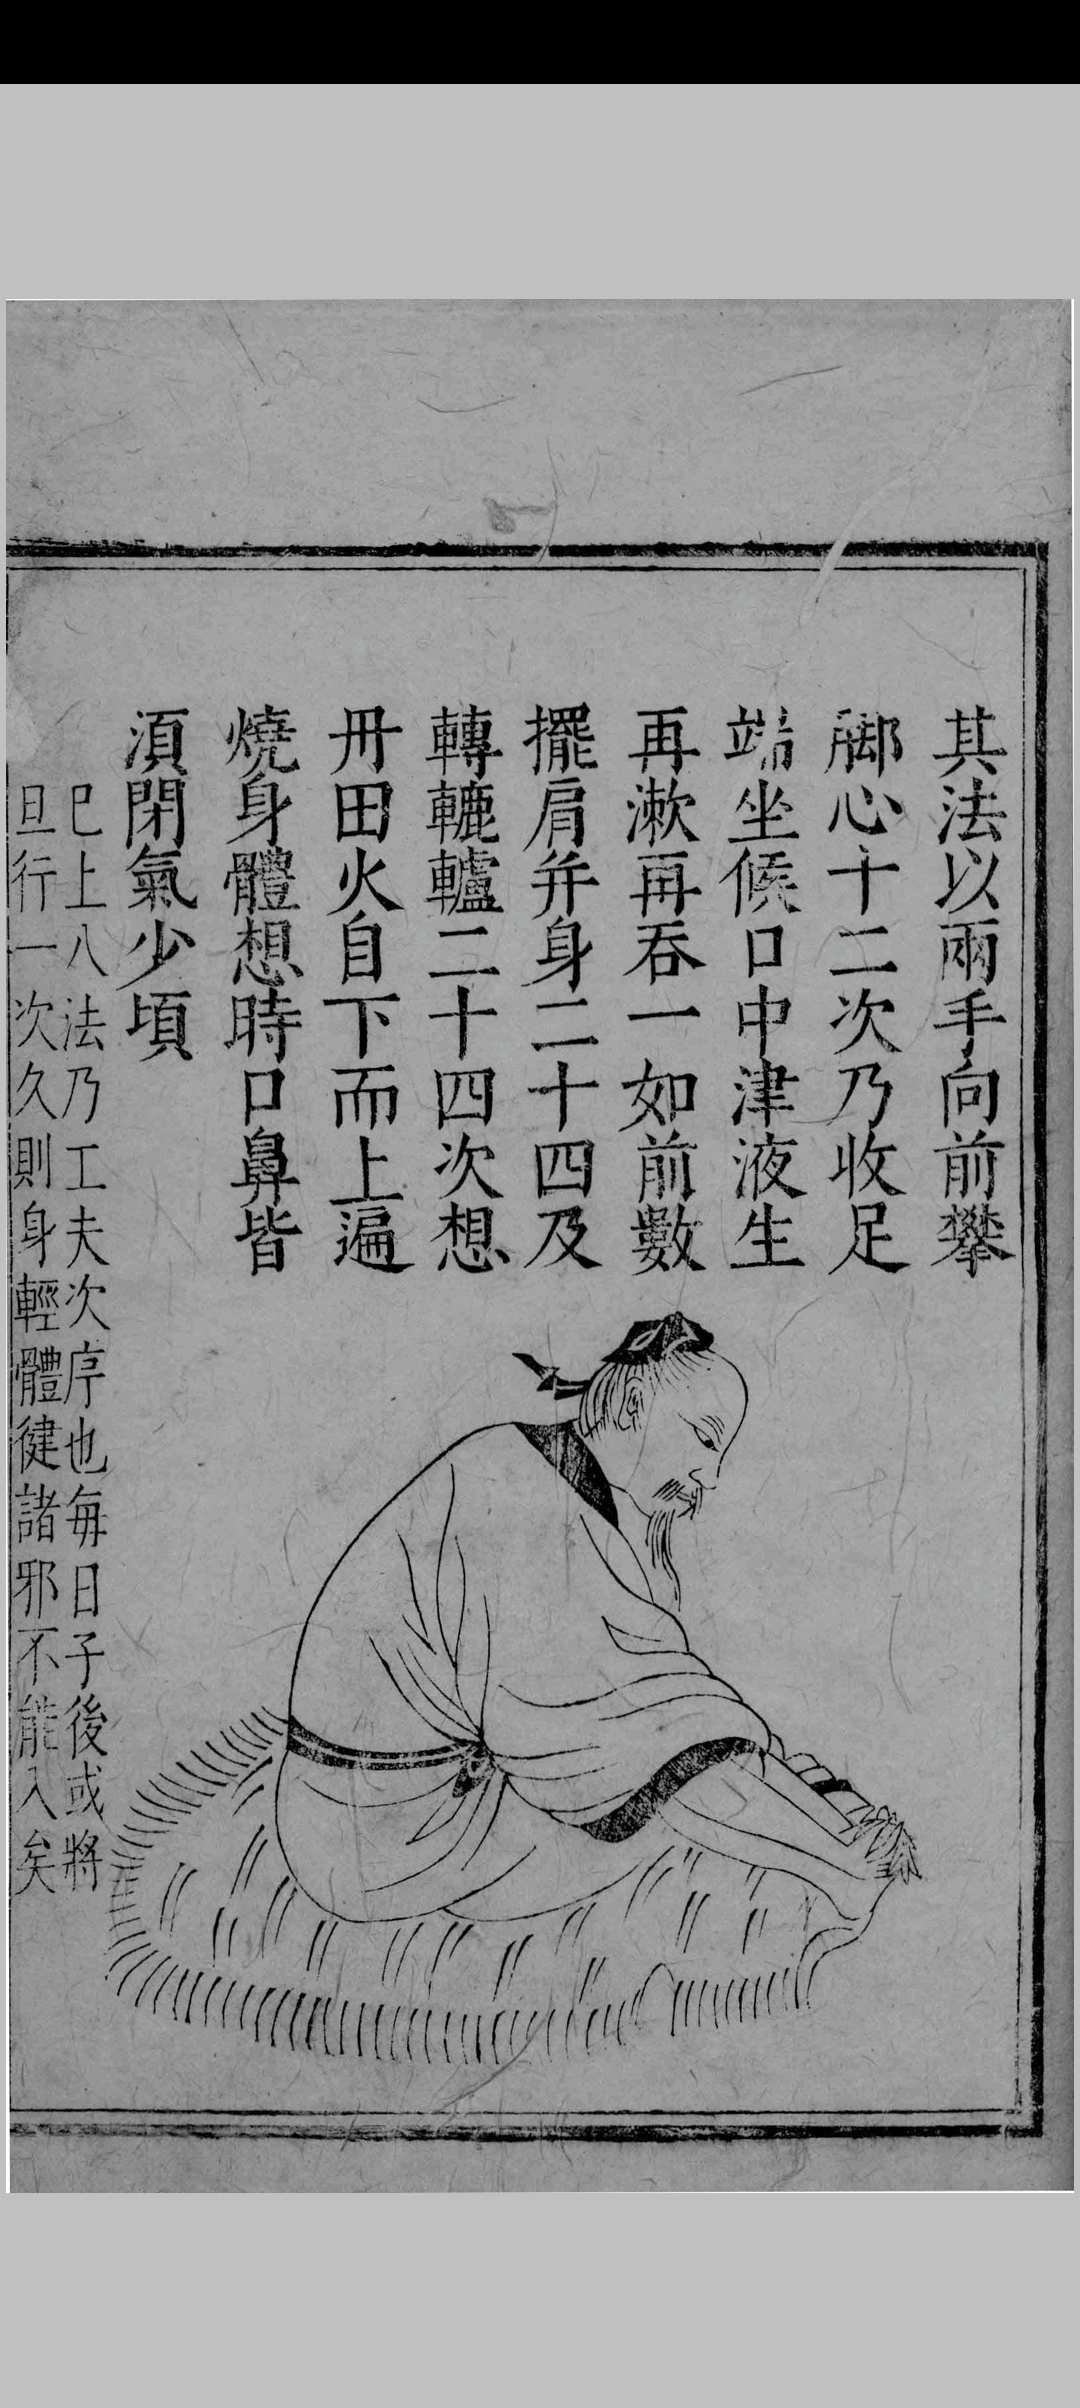 其法以兩手向前攀
脚心十二次乃收足
端坐候口中津液生
再漱再吞一如前數
擺肩并身二十四及
轉轆轤二十四次想
丹田火自下而上遍
燒身體想時口鼻皆
須閉氣少頃
巳上八法乃工夫次序也每日子後或將
旦行一次久則身輕體健諸邪不能入矣